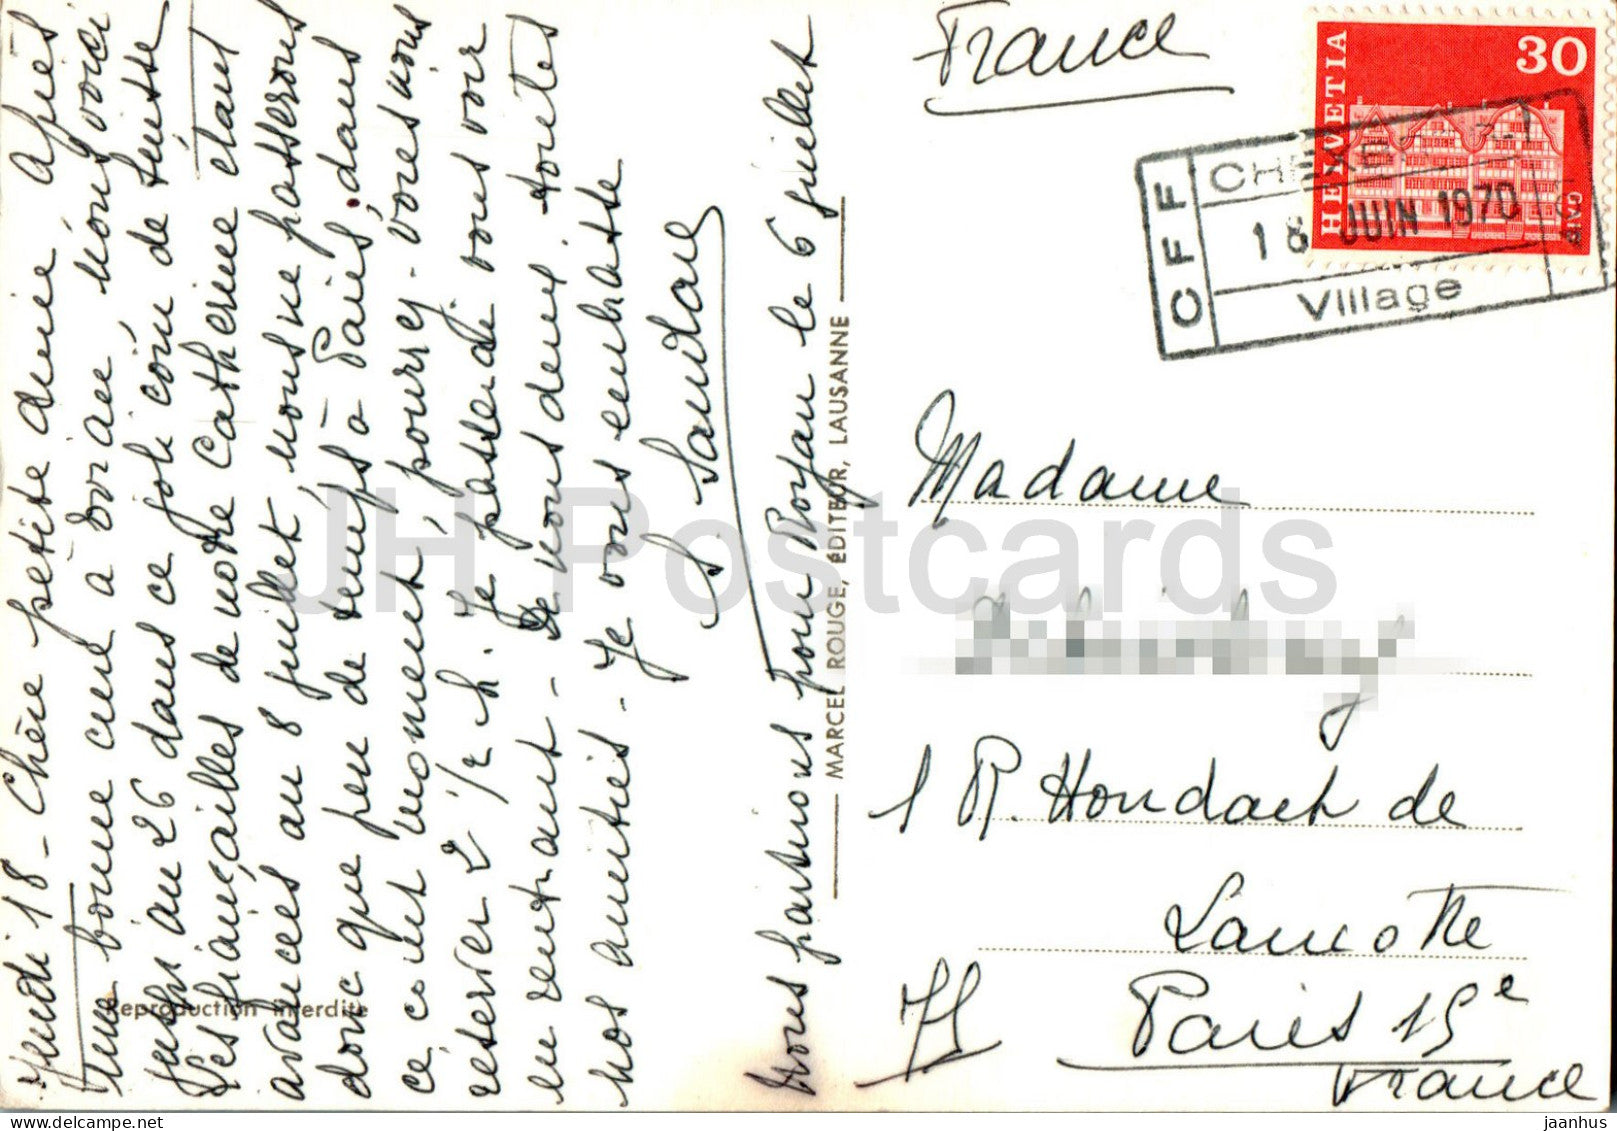 Jeudi 18 - Chère petite amie, après
une bonne cure à Evian, nous voici
jusqu'au 26 dans ce joli coin de Suisse
Les fiançailles de notre Catherine étant
avancées au 8 juillet, nous ne passerons
donc que peu de temps à Paris, dans
ce court moment, pourrez-vous nous
réserver 2 1/2 h. Je passerai vous voir
en rentrant - De nous deux, toutes
nos amitiés - Je vous embrasse
Nous partirons pour Royan le 6 juillet
Reproduction interdite
MARCEL ROUGE, ÉDITEUR, LAUSANNE
France
HELVETIA
30
GAIS
CFF
18 JUIN 1970
Village
Madame
1 R. Houdart de
Lamotte
75 Paris 15e
France
JH Postcards
jaanhus
delcampe.net